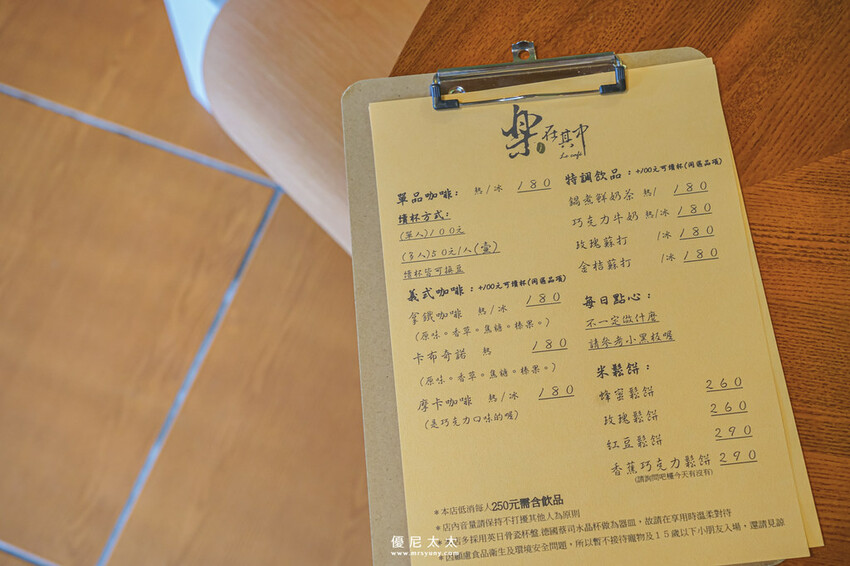 樂在其中
單品咖啡: 熱/冰 180
續杯方式:
(單人)100元
(多人)50元/人(壺)
續杯皆可換豆
義式咖啡:+100元可續杯(同區品項)
拿鐵咖啡 熱/冰 180
(原味。香草。焦糖。榛果。)
卡布奇諾 熱 180
(原味。香草。焦糖。榛果。)
摩卡咖啡 熱/冰 180
(是巧克力口味的喔)
特調飲品:+100元可續杯(同區品項)
鍋煮鮮奶茶 熱/ 180
巧克力牛奶 熱/冰 180
玫瑰蘇打 /冰 180
金桔蘇打 /冰 180
每日點心:
不一定做什麼
請參考小黑板喔
米鬆餅:
蜂蜜鬆餅 260
玫瑰鬆餅 260
紅豆鬆餅 290
香蕉巧克力鬆餅 290
(請詢問吧檯今天有沒有)
*本店低消每人250元需含飲品
*店內音量請保持不打擾其他人為原則
多採用英日骨瓷杯盤.德國蔡司水晶杯做為器皿,故請在享用時溫柔對待
*因顧慮食品衛生及環境安全問題,所以暫不接待寵物及15歲以下小朋友入場,還請見諒
優尼太太
www.mrsyuny.com